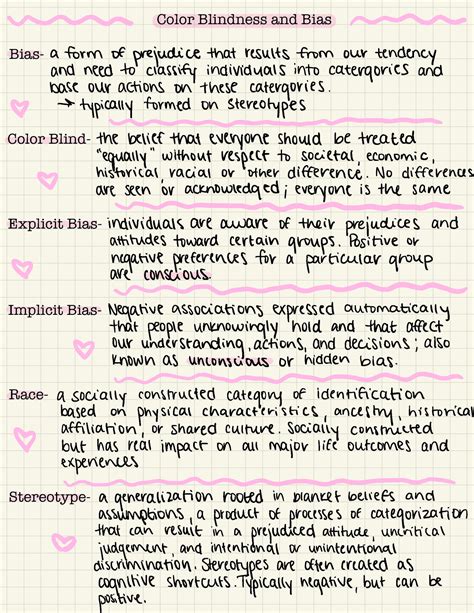 Color Blindness and Bias
Bias- a form of prejudice that results from our tendency
and need to classify individuals into catergories and
base our actions on these catergories.
→ typically formed on stereotypes
Color Blind- the belief that everyone should be treated
"equally" without respect to societal, economic,
historical, racial or other difference. No differences
are seen or acknowledged; everyone is the same
Explicit Bias- individuals are aware of their prejudices and
attitudes toward certain groups. Positive or
negative preferences for a particular group
are conscious.
Implicit Bias- Negative associations expressed automatically
that people unknowingly hold and that affect
our understanding, actions, and decisions; also
known as unconscious or hidden bias.
Race- a socially constructed category of identification
based on physical characteristics, ancestry, historical
affiliation, or shared culture. Socially constructed
but has real impact on all major life outcomes and
experiences
Stereotype- a generalization rooted in blanket beliefs and
assumptions, a product of processes of categorization
that can result in a prejudiced attitude, uncritical
judgement, and intentional or unintentional
discrimination. Stereotypes are often created as
cognitive shortcuts. Typically negative, but can be
positive.